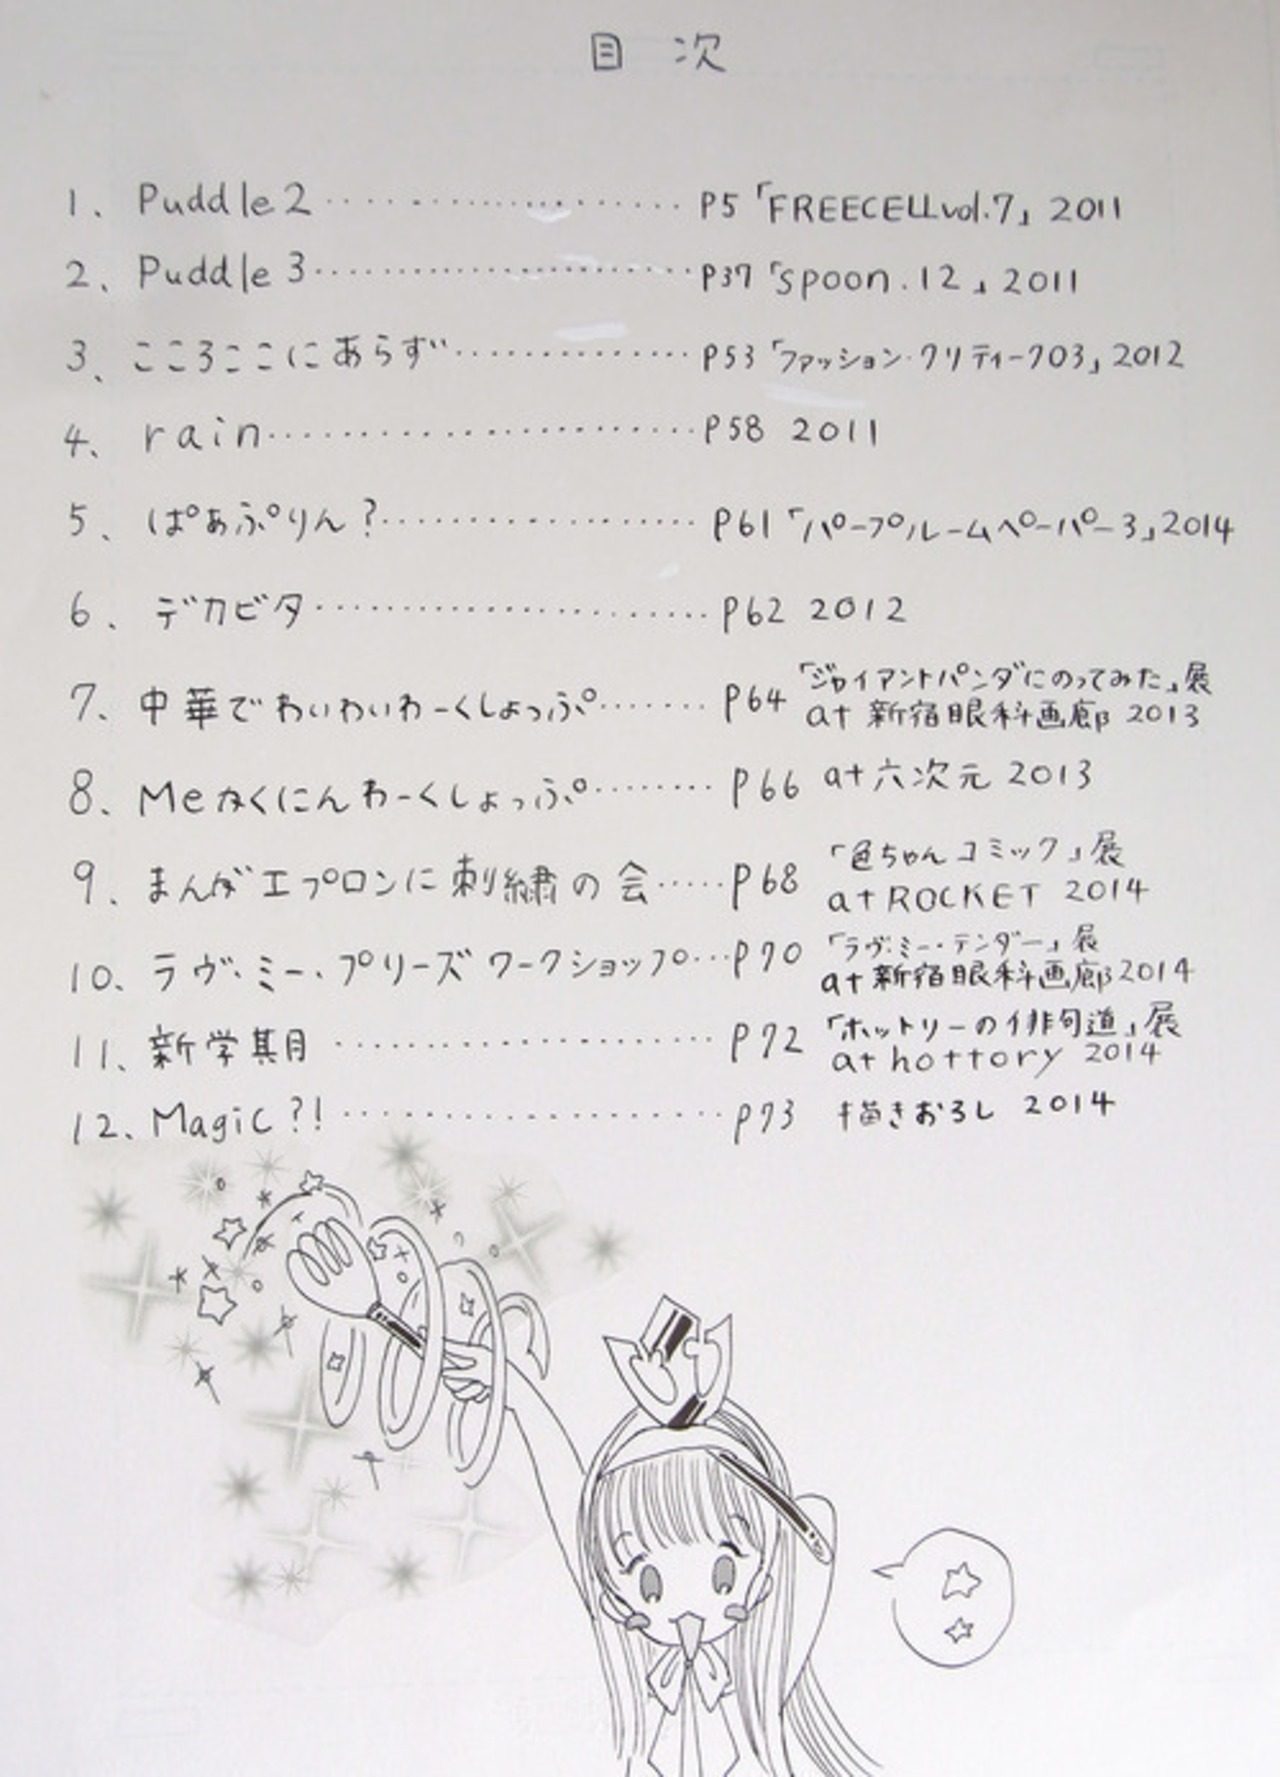 目次
1、Puddle2・・・・・・・・・・・・・・・・・・・・P5「FREECELLvol.7」2011
2、Puddle3・・・・・・・・・・・・・・・・・・・・P37「spoon.12」2011
3、こころここにあらず・・・・・・・・・・・・・・P53「ファッション・クリティーク03」2012
4、rain・・・・・・・・・・・・・・・・・・・・・・P58 2011
5、ぱぁぷりん?・・・・・・・・・・・・・・・・・・P61「パープルームペーパー3」2014
6、デカビタ・・・・・・・・・・・・・・・・・・・・P62 2012
7、中華でわいわいわーくしょっぷ・・・・・・・P64「ジャイアントパンダにのってみた」展
at 新宿眼科画廊 2013
8、Meかくにんわーくしょっぷ・・・・・・・・P66 at六次元 2013
9、まんがエプロンに刺繍の会・・・・・P68「色ちゃんコミック」展
at ROCKET 2014
10、ラヴ・ミー・プリーズワークショップ・・・P70「ラヴ・ミー・テンダー」展
at 新宿眼科画廊2014
11、新学期・・・・・・・・・・・・・・・・・・・・P72「ホットリーの俳句道」展
at hottory 2014
12、Magic?!・・・・・・・・・・・・・・・・・・・・P73 描きおろし 2014